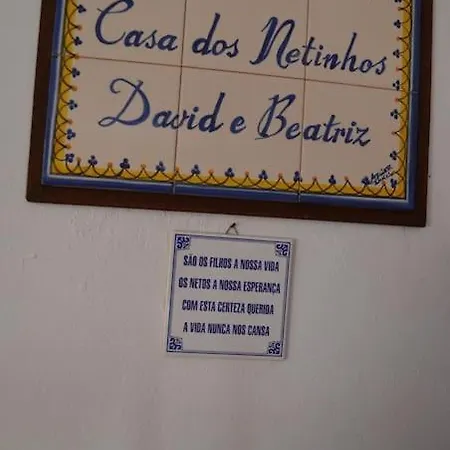 Casa dos Netinhos
David e Beatriz
SÃO OS FILHOS A NOSSA VIDA
OS NETOS A NOSSA ESPERANÇA
COM ESTA CERTEZA QUERIDA
A VIDA NUNCA NOS CANSA